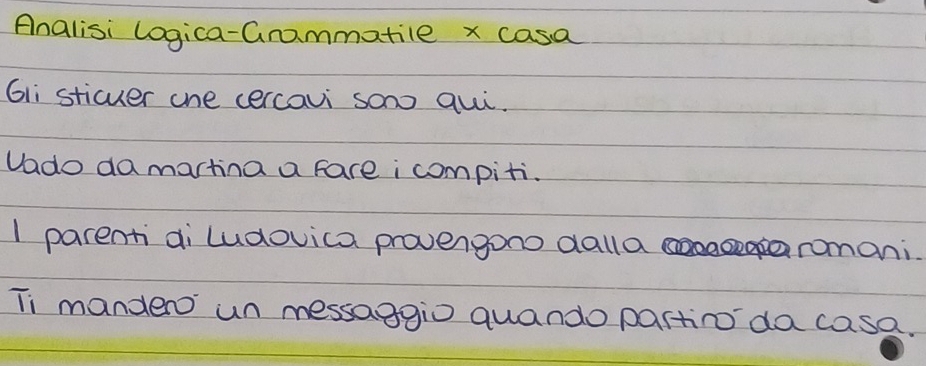 Analisi Logica-Grammatile x casa
Gli sticker che cercavi sono qui.
Vado da martina a fare i compiti.
I parenti di Ludovica provengono dalla romani.
Ti manderò un messaggio quando partirò da casa.